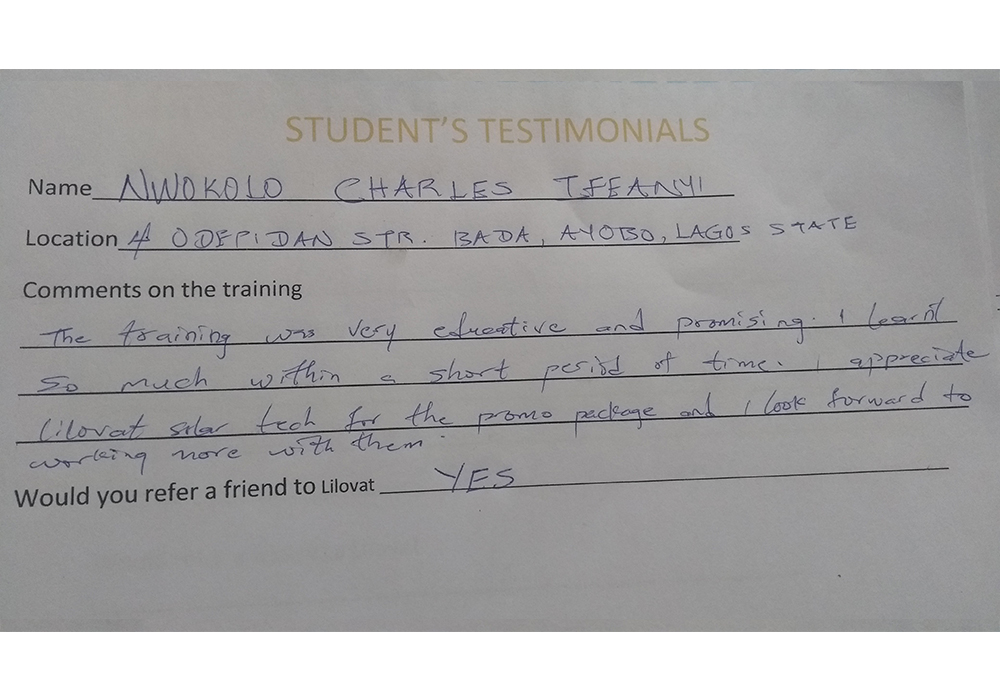 STUDENT'S TESTIMONIALS
Name NWOKOLO CHARLES IFEANYI
Location 4 ODEPIDAN STR. BADA, AYOBO, LAGOS STATE
Comments on the training
The training was very educative and promising. I learnt
So much within a short period of time. I appreciate
Lilovat solar tech for the promo package and I look forward to
working more with them.
Would you refer a friend to Lilovat YES